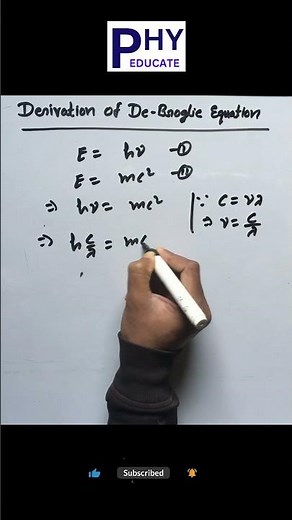 PHY
EDUCATE
Derivation of De-Broglie Equation
E = hν —①
E = mc² —⑪
⇒ hν = mc²
∵ C = νλ
⇒ ν = C/λ
⇒ h C/λ = mc
Subscribed